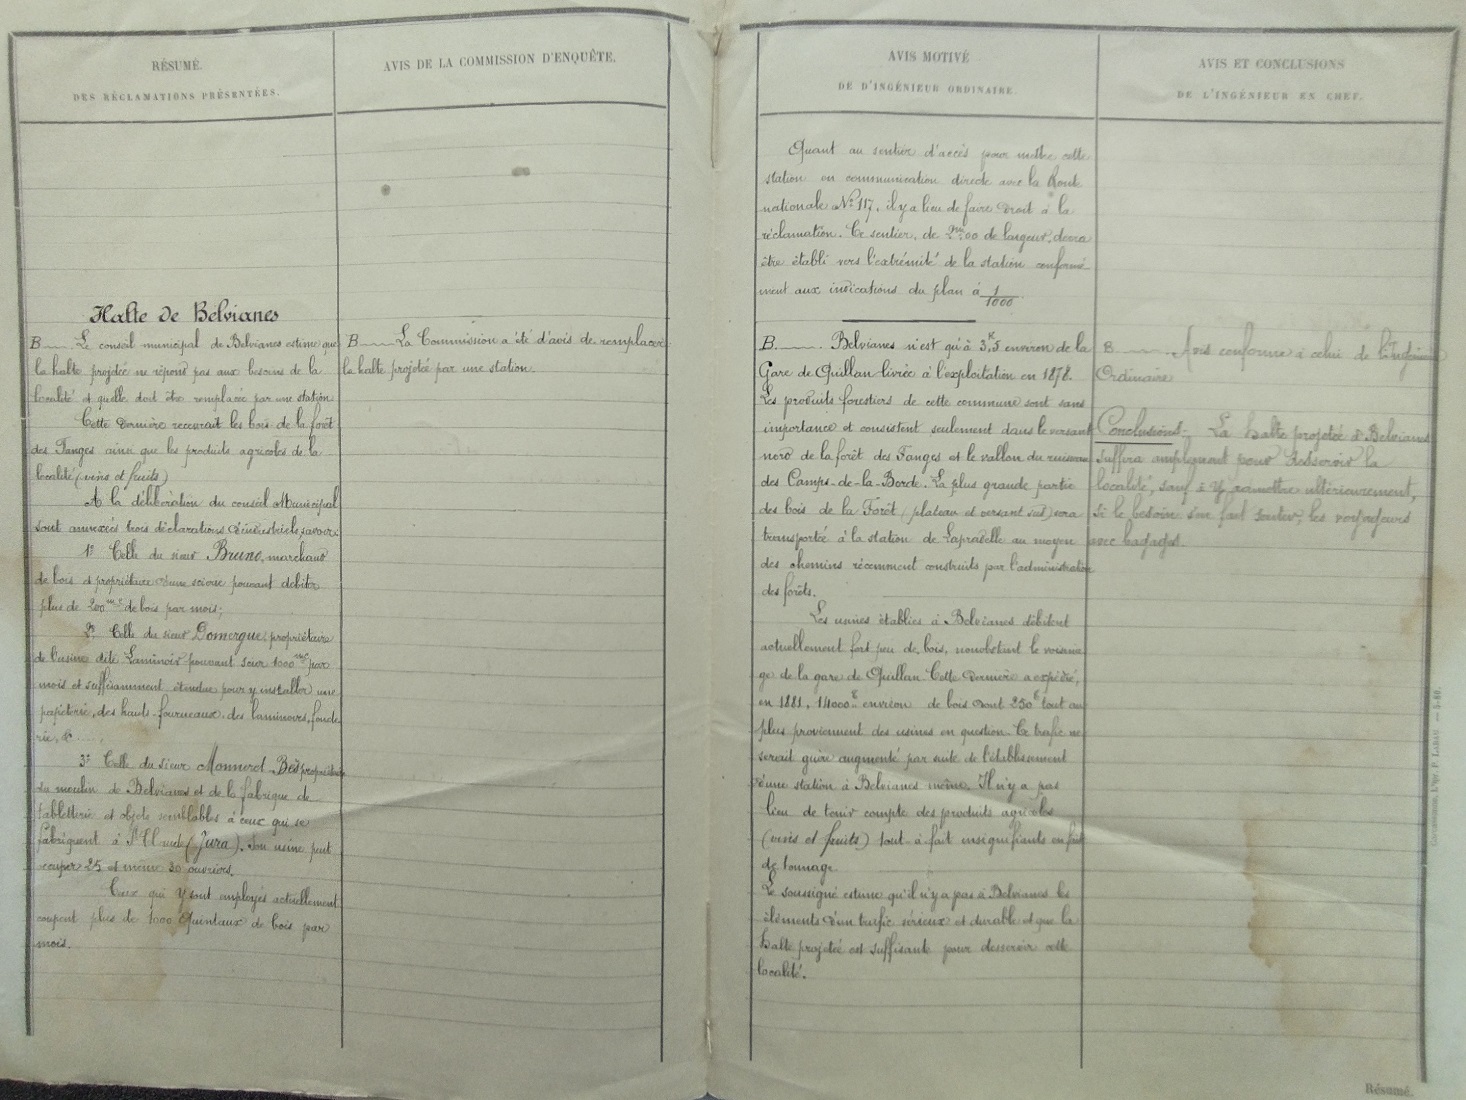 RÉSUMÉ.
DES RÉCLAMATIONS PRÉSENTÉES.
Halte de Belvianes
B. Le conseil municipal de Belvianes estime que
la halte projetée ne répond pas aux besoins de la
localité et qu'elle doit être remplacée par une station
Cette dernière recevrait les bois de la forêt
des Fanges ainsi que les produits agricoles de la
localité (vins et fruits)
A la délibération du conseil Municipal
sont annexées trois déclarations d'industriels, savoir:
1° Celle du sieur Bruno, marchand
de bois et propriétaire d'une scierie pouvant débiter
plus de 200 m.c de bois par mois;
2° Celle du sieur Domergue, propriétaire
de l'usine dite Laminoir pouvant scier 1000 m.c par
mois et suffisamment étendue pour y installer une
papèterie, des hauts-fourneaux, des laminoirs, fonde
rie, &
3° Celle du sieur Monnerel propriétaire
du moulin de Belvianes et de la fabrique de
tabletterie et objets semblables à ceux qui se
fabriquent à St Claude (Jura). Son usine peut
occuper 25 et même 30 ouvriers.
Ceux qui y sont employés actuellement
coupent plus de 1000 Quintaux de bois par
mois.
AVIS DE LA COMMISSION D'ENQUÊTE.
B. La Commission a été d'avis de remplacer
la halte projetée par une station.
AVIS MOTIVÉ
DE D'INGÉNIEUR ORDINAIRE.
Quant au sentier d'accès pour mettre cette
station en communication directe avec la Route
nationale N° 117, il y a lieu de faire droit à la
réclamation. Ce sentier, de 2m.00 de largeur, devra
être établi vers l'extrémité de la station conformé
ment aux indications du plan à 1/1000.
B. Belvianes n'est qu'à 3k,5 environ de la
Gare de Quillan livrée à l'exploitation en 1878.
Les produits forestiers de cette commune sont sans
importance et consistent seulement dans le versant
nord de la forêt des Fanges et le vallon du ruisseau
des Camps-de-la-Borde. La plus grande partie
des bois de la Forêt (plateau et versant sud) sera
transportée à la station de Lapradelle au moyen
des chemins récemment construits par l'administration
des forêts.
Les usines établies à Belvianes débitent
actuellement fort peu de bois, nonobstant le voisina
ge de la gare de Quillan. Cette dernière a expédié,
en 1881, 14000 t environ de bois dont 250 t tout au
plus proviennent des usines en question. Ce trafic ne
serait guère augmenté par suite de l'établissement
d'une station à Belvianes même. Il n'y a pas
lieu de tenir compte des produits agricoles
(vins et fruits) tout-à-fait insignifiants en fait
de tonnage.
Le soussigné estime qu'il n'y a pas à Belvianes les
éléments d'un trafic sérieux et durable et que la
halte projetée est suffisante pour desservir cette
localité.
AVIS ET CONCLUSIONS
DE L'INGÉNIEUR EN CHEF.
B. Avis conforme à celui de l'Ingénieur
Ordinaire
Conclusions. La halte projetée à Belvianes
suffira amplement pour desservir la
localité, sauf à y admettre ultérieurement,
si le besoin s'en fait sentir, les voyageurs
avec bagages.
Résumé.